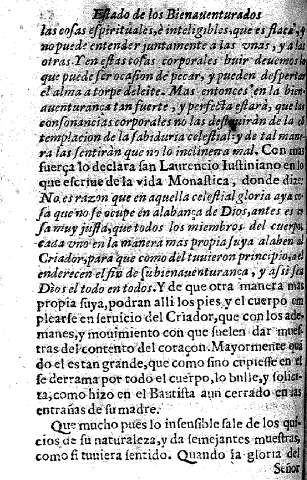 Estado de los Bienauenturados
las cosas espirituales, è inteligibles, que es flaca, y
no puede entender juntamente a las vnas, y a las
otras. Y en estas cosas corporales huir deuemos lo
que puede ser ocasion de pecar, y pueden desperta
el alma a torpe deleite. Mas entonces en la bien
auenturança tan fuerte, y perfecta estarà, que las
consonancias corporales no las destruiràn de la cō
templacion de la sabiduria celestial: y de tal mane
ra las sentiràn que no lo incline a mal. Con mas
fuerça lo declara san Laurencio Iustiniano en lo
que escriue de la vida Monastica, donde dize
No es razon que en aquella celestial gloria aya co
sa que no se ocupe en alabança de Dios, antes es co
sa muy justa, que todos los miembros del cuerpo,
cada vno en la manera mas propia suya alaben al
Criador, para que como del tuuieron principio, a el
enderecen el fin de su bienauenturança, y assi sea
Dios el todo en todos. Y de que otra manera mas
propia suya, podran alli los pies y el cuerpo em
plearse en seruicio del Criador, que con los ade-
manes, y mouimiento con que suelen dar mues
tras del contento del coraçon. Mayormente quā
do el es tan grande, que como sino cupiesse en el
se derrama por todo el cuerpo, lo bulle, y solici-
ta, como hizo en el Bautista aun cerrado en las
entrañas de su madre.
Que mucho pues lo insensible sale de los qui
cios de su naturaleza, y da semejantes muestras,
como si tuuiera sentido. Quando la gloria del
Señor